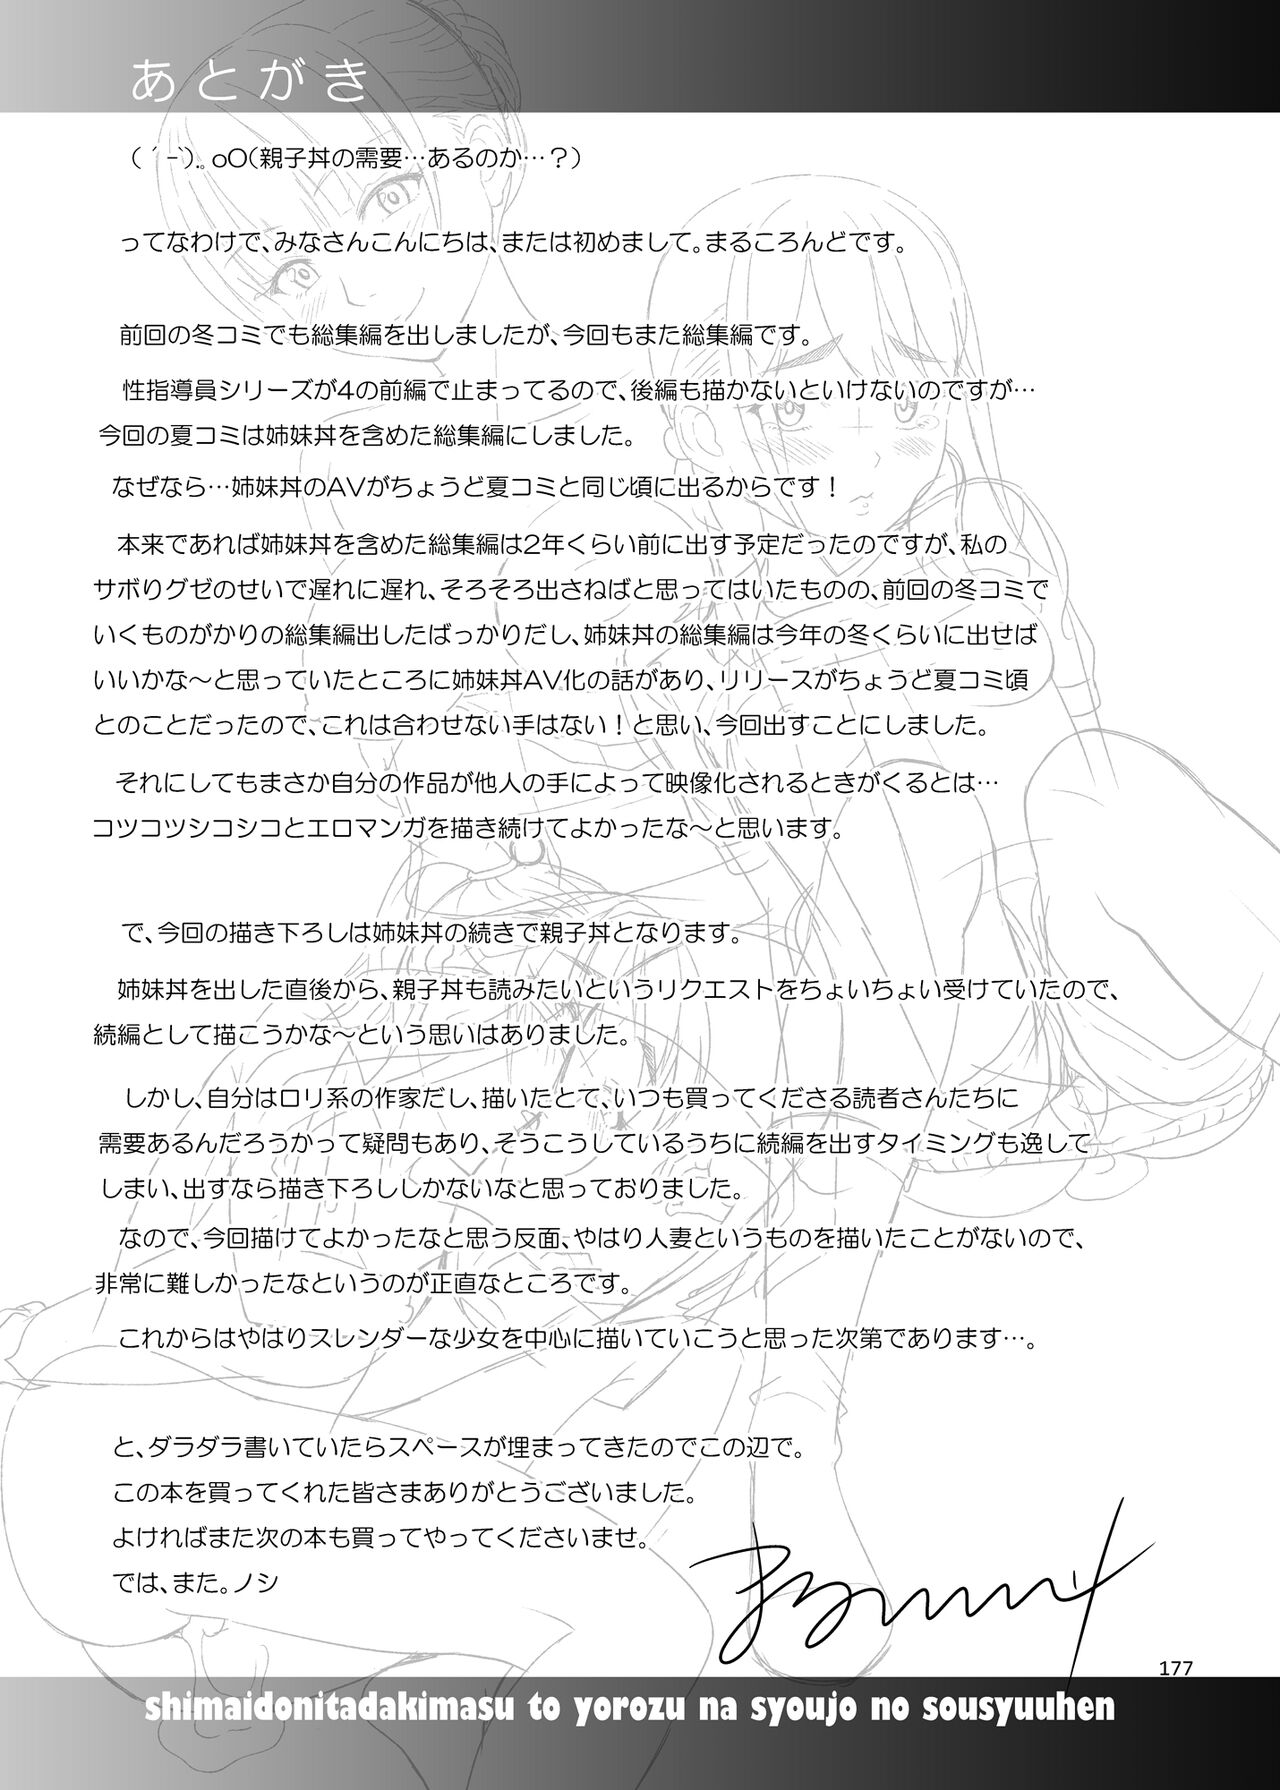 あとがき
( ´-`).｡oO(親子丼の需要…あるのか…？)
ってなわけで、みなさんこんにちは、または初めまして。まるころんどです。
前回の冬コミでも総集編を出しましたが、今回もまた総集編です。
性指導員シリーズが4の前編で止まってるので、後編も描かないといけないのですが…
今回の夏コミは姉妹丼を含めた総集編にしました。
なぜなら…姉妹丼のAVがちょうど夏コミと同じ頃に出るからです！
本来であれば姉妹丼を含めた総集編は2年くらい前に出す予定だったのですが、私の
サボりグゼのせいで遅れに遅れ、そろそろ出さねばと思ってはいたものの、前回の冬コミで
いくものがかりの総集編出したばっかりだし、姉妹丼の総集編は今年の冬くらいに出せば
いいかな～と思っていたところに姉妹丼AV化の話があり、リリースがちょうど夏コミ頃
とのことだったので、これは合わせない手はない！と思い、今回出すことにしました。
それにしてもまさか自分の作品が他人の手によって映像化されるときがくるとは…
コツコツシコシコとエロマンガを描き続けてよかったな～と思います。
で、今回の描き下ろしは姉妹丼の続きで親子丼となります。
姉妹丼を出した直後から、親子丼も読みたいというリクエストをちょいちょい受けていたので、
続編として描こうかな～という思いはありました。
しかし、自分はロリ系の作家だし、描いたとて、いつも買ってくださる読者さんたちに
需要あるんだろうかって疑問もあり、そうこうしているうちに続編を出すタイミングも逸して
しまい、出すなら描き下ろししかないなと思っておりました。
なので、今回描けてよかったなと思う反面、やはり人妻というものを描いたことがないので、
非常に難しかったなというのが正直なところです。
これからはやはりスレンダーな少女を中心に描いていこうと思った次第であります…。
と、ダラダラ書いていたらスペースが埋まってきたのでこの辺で。
この本を買ってくれた皆さまありがとうございました。
よければまた次の本も買ってやってくださいませ。
では、また。ノシ
177
shimaidonitadakimasu to yorozu na syoujo no sousyuuhen